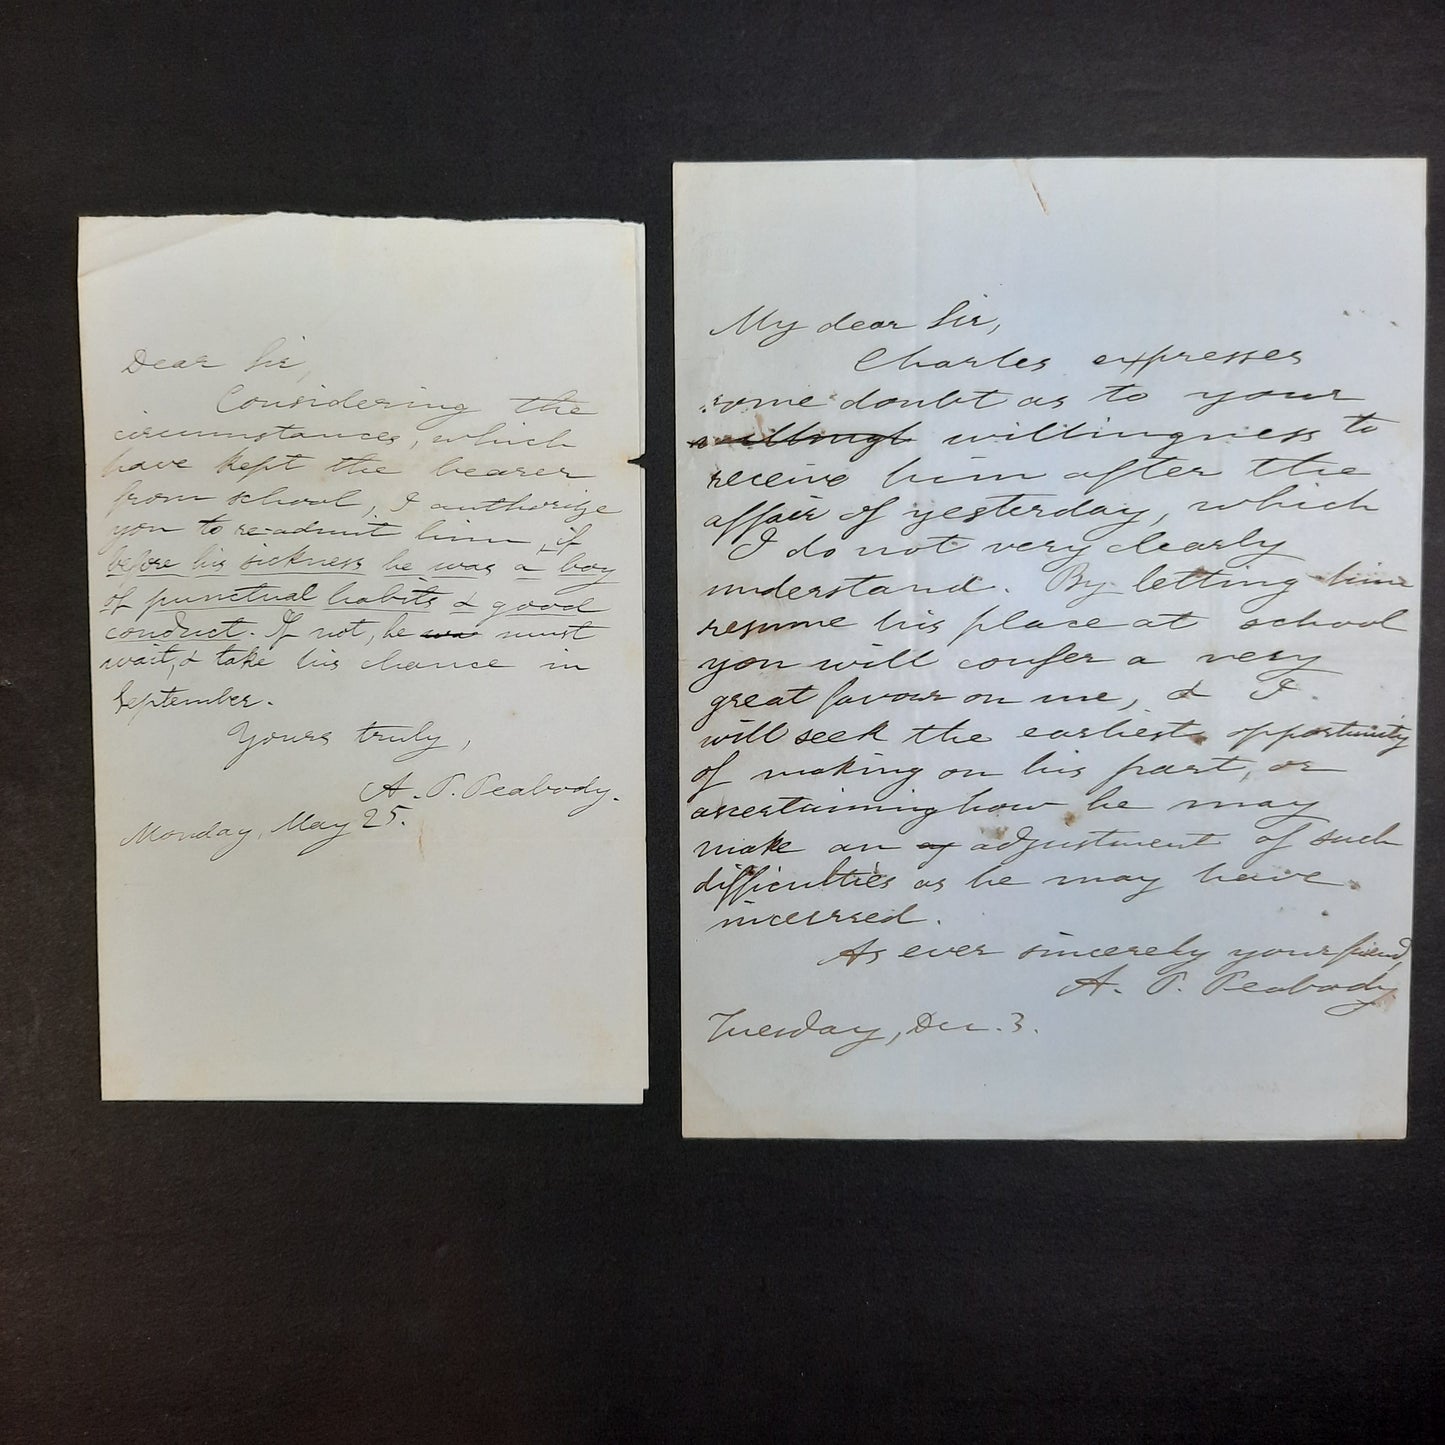 Dear Sir,
Considering the
circumstances, which
have kept the bearer
from school, I authorize
you to re-admit him, if
before his sickness he was a boy
of punctual habits & good
conduct. If not, he was must
wait, & take his chance in
September.
Yours truly,
A. P. Peabody.
Monday, May 25.
My dear Sir,
Charles expresses
some doubt as to your
willingness to
receive him after the
affair of yesterday, which
I do not very clearly
understand. By letting him
resume his place at school
you will confer a very
great favour on me, & I
will seek the earliest opportunity
of making on his part, or
ascertaining how he may
make an adjustment of such
difficulties as he may have
incurred.
As ever sincerely your friend,
A. P. Peabody
Tuesday, Dec. 3.